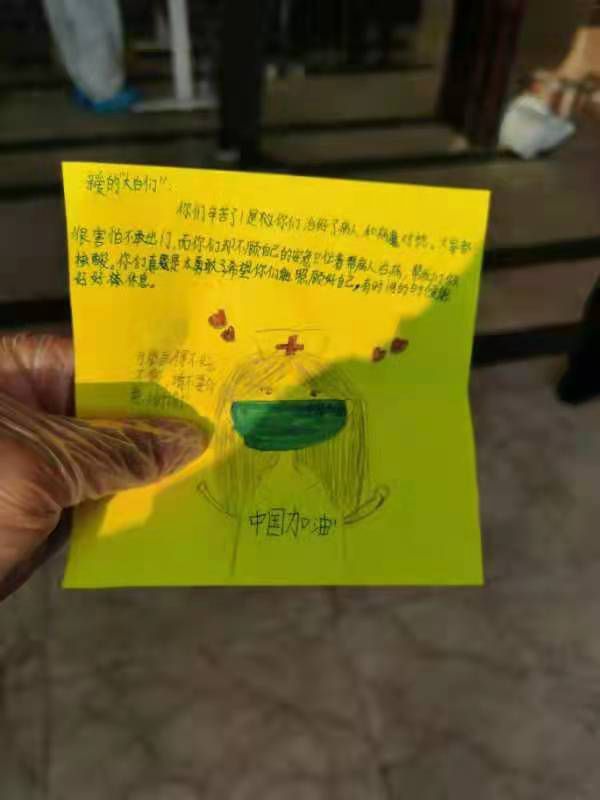 亲爱的"大白们":
你们辛苦了!是你们治好了病人和病毒对抗。大家都
很害怕不敢出门,而你们却不顾自己的安危只位着帮病人治病,帮我们做
核酸。你们真是太勇敢了希望你们能照顾好自己,有时间的时候能
好好休息。
中国加油